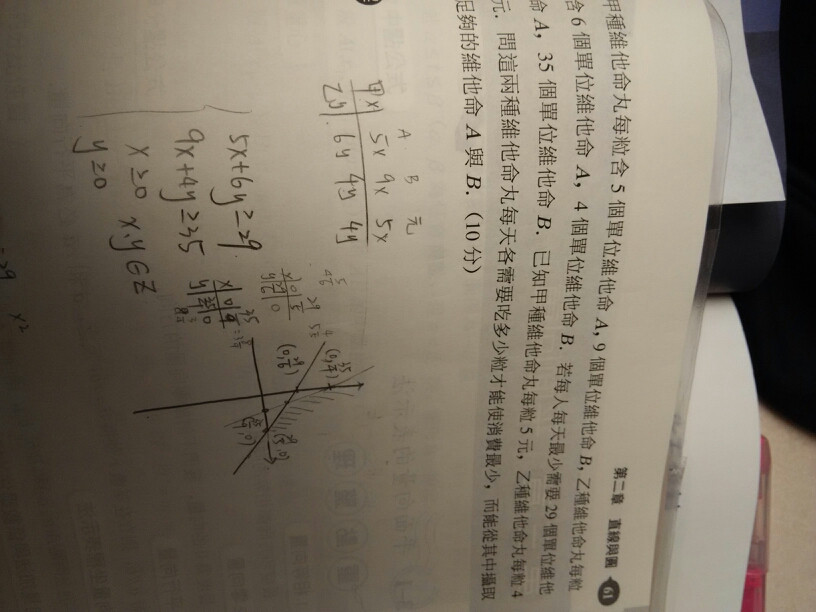 第二章 直線與圓 61
甲種維他命丸每粒含 5 個單位維他命 A, 9 個單位維他命 B, 乙種維他命丸每粒
含 6 個單位維他命 A, 4 個單位維他命 B. 若每人每天最少需要 29 個單位維他
命 A, 35 個單位維他命 B. 已知甲種維他命丸每粒 5 元, 乙種維他命丸每粒 4
元. 問這兩種維他命丸每天各需要吃多少粒才能使消費最少, 而能從其中攝取
足夠的維他命 A 與 B. (10 分)
A B 元
甲x 5x 9x 5x
乙y 6y 4y 4y
5x+6y≥29
9x+4y≥35
x≥0 x,y∈Z
y≥0
(0,35/4)
(0,29/6)
(35/9,0)
(29/5,0)